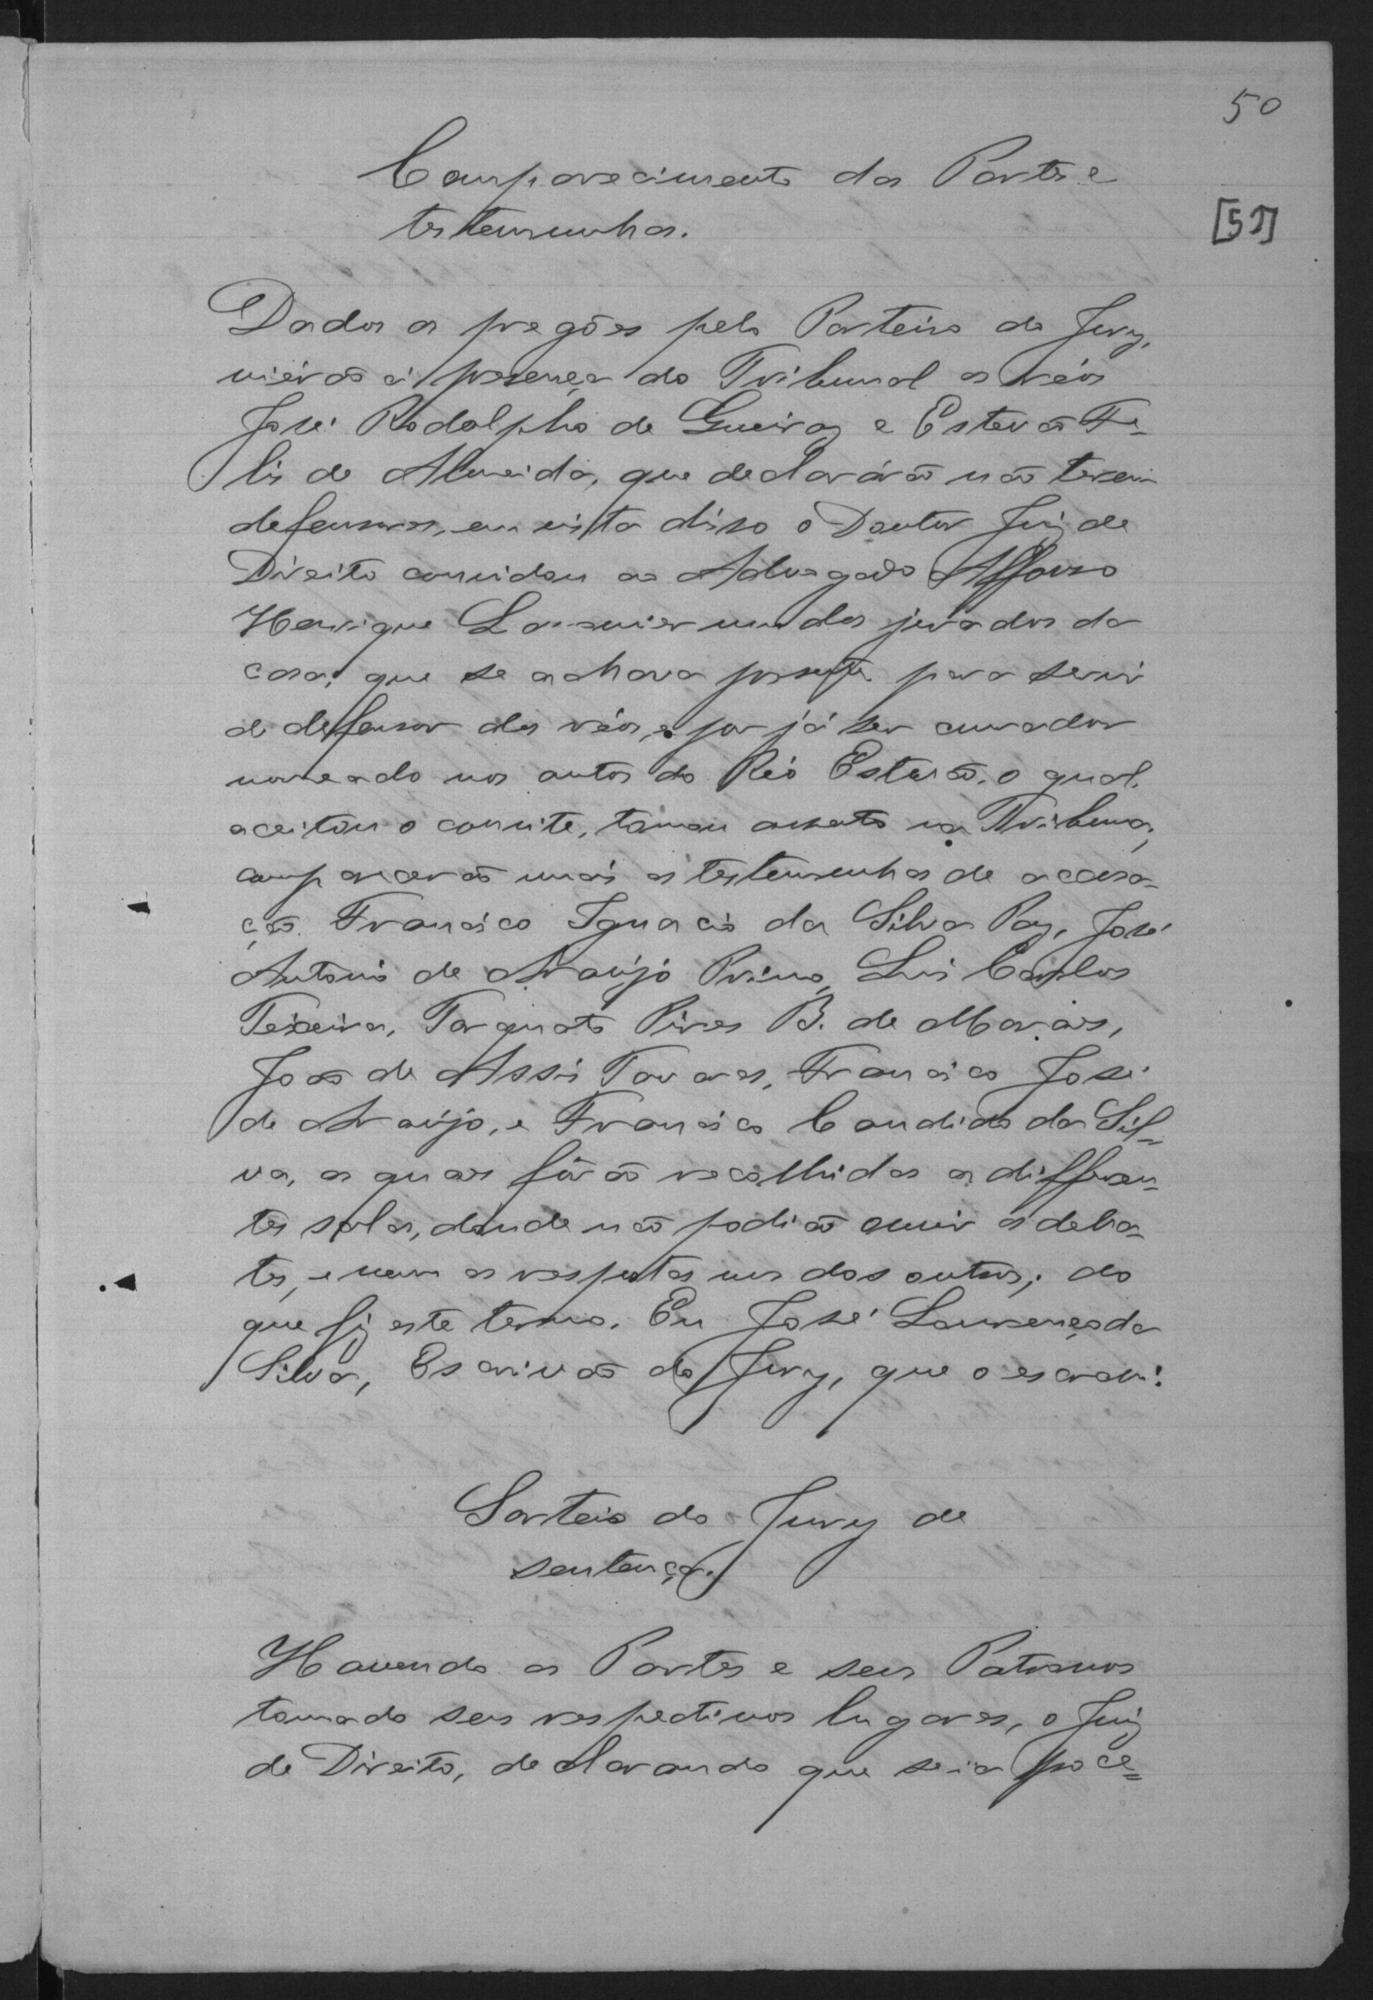 50
[51]
Comparecimento das Partes e
testemunhas.
Dados os pregões pelo Porteiro do Jury,
viérão á presença do Tribunal os réos
José Rodolpho de Gueiroz e Estevão Fe-
lis de Almeida, que declarárão não terem
defensores, em vista disso o Doutor Juiz de
Direito convidou ao Advogado Affonso
Henrique um dos jurados da
casa, que se achava presente para servir
de defensor dos réos, e por já ser curador
nomeado nos autos do Réo Estevão, o qual,
aceitou o convite, tomou assento na Tribuna;
comparecerão mais as testemunhas de accusa-
ção Francisco Ignacio da Silva Paz, José
Antonio de Araújo Primo, Luis Carlos
Teixeira, Torquato Pires B. de Moraes,
João de Assis Tavares, Francisco José
de Araújo, e Francisco Candido da Sil-
va, as quaes fôrão recolhidas a differen-
tes salas, donde não podião ouvir os deba-
tes, e nem as respostas uns dos outros; do
que fiz este termo. Eu José Lourenço da
Silva, Escrivão do Jury, que o escrevi.
Sorteio do Jury de
sentença.
Havendo as Partes e seus Patronos
tomado seus respectivos lugares, o Juiz
de Direito, declarando que se ia proce=